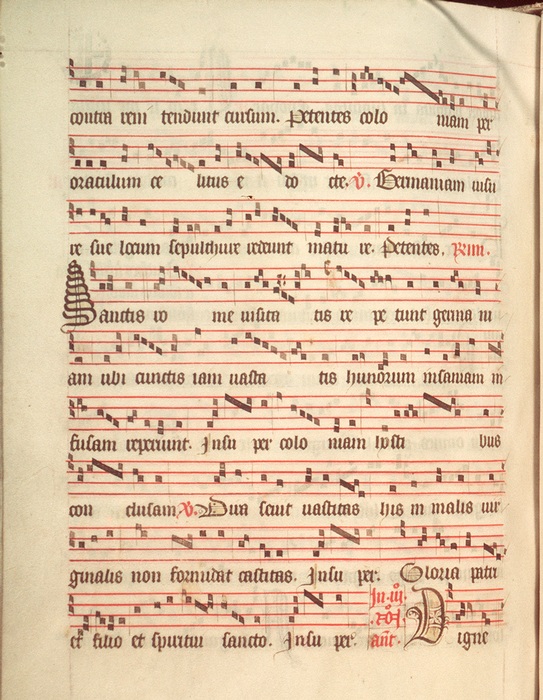 contra rem tendunt cursum. Petentes colo niam per
oraculum ce litus e do cte. V. Germaniam iussi
re sue locum sepulthure redeunt matu re. Petentes. Prim.
Sanctis ro me visita tis re pe tunt germa ni
am ubi cunctis iam vasta tis hunorum insaniam in
fusam repererunt. Insu per colo niam hosti bus
con clusam V. Dura scut vastitas his in malis vir
ginalis non formidat castitas. Insu per. Gloria patri
et filio et spiritui sancto. Insu per. In .iii. ant. Digne